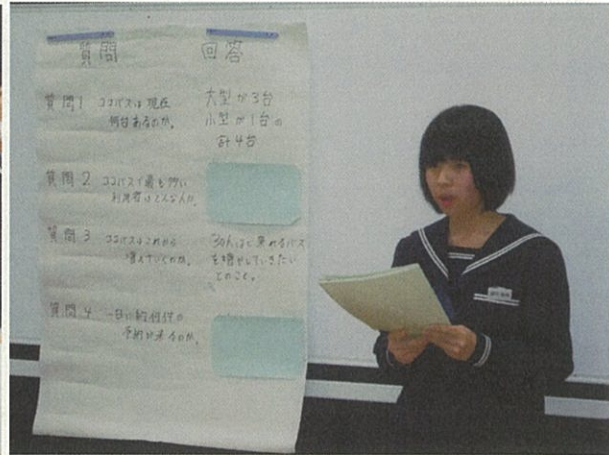 質問 回答
質問1 ココバスは現在
何台あるのか。
大型が3台
小型が1台の
計4台
質問2 ココバスで最も多い
利用者はどんな人か。
質問3 ココバスはこれから
増えていくのか。
30人ほど乗れるバス
を増やしていきたい
とのこと。
質問4 一日に約何件の
予約が来るのか。